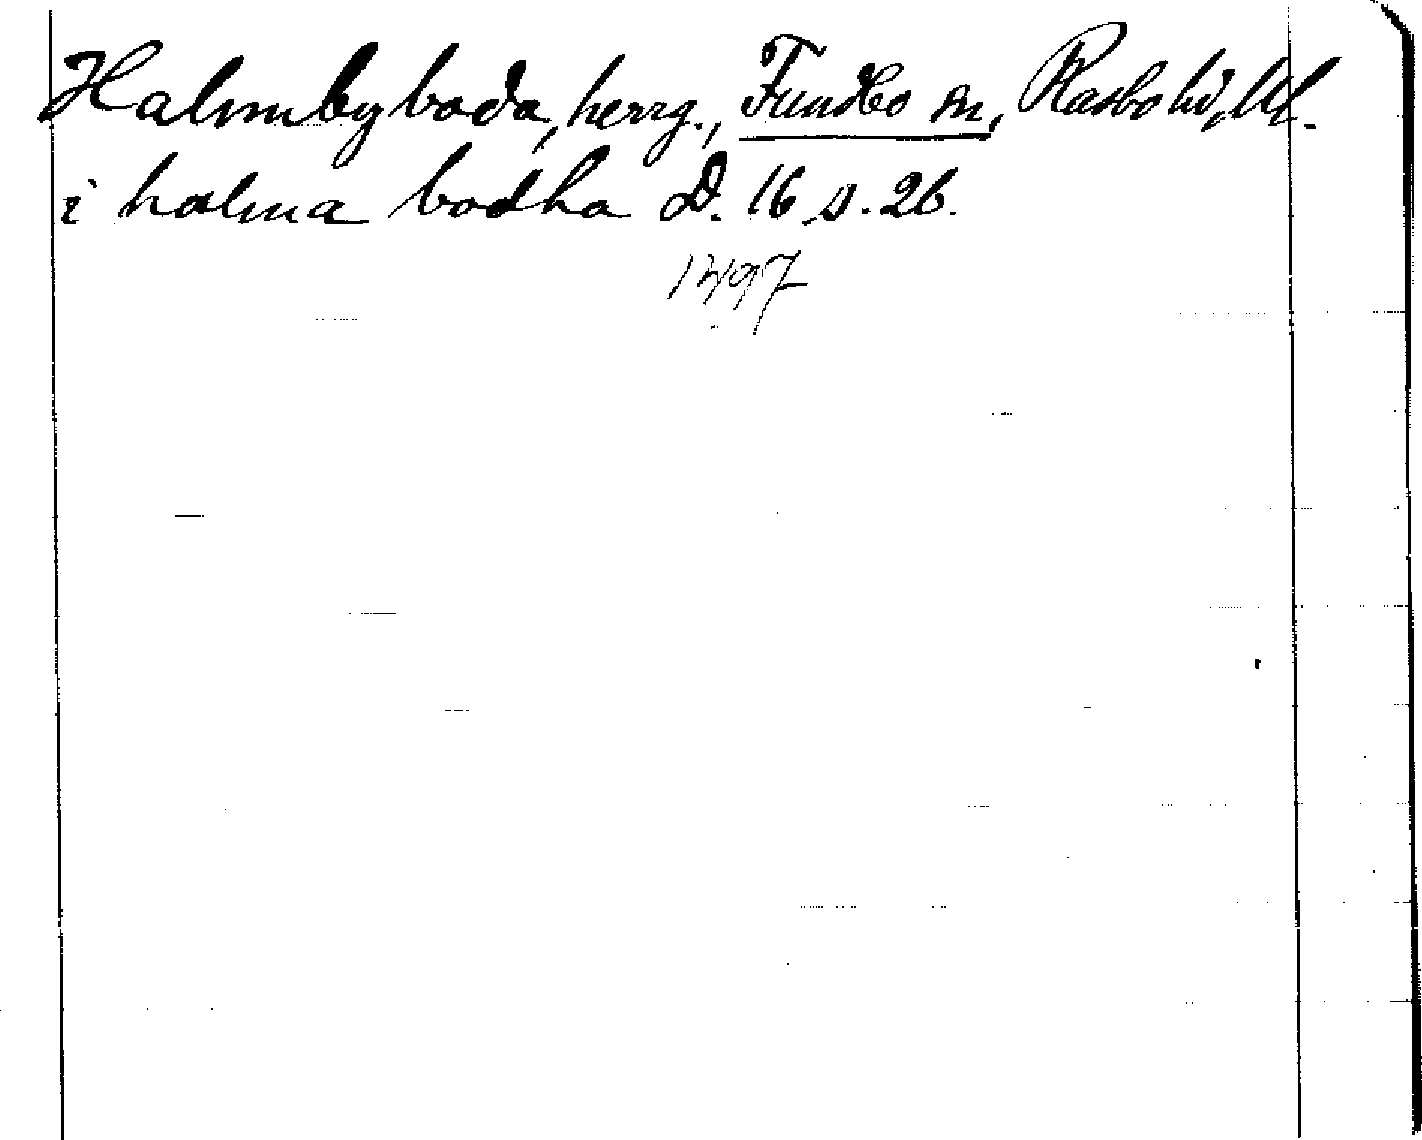 Halmbyboda, herrg., Funbo sn, Rasbo hd, Upl.
i halma bodha D. 16 s. 26.
1497